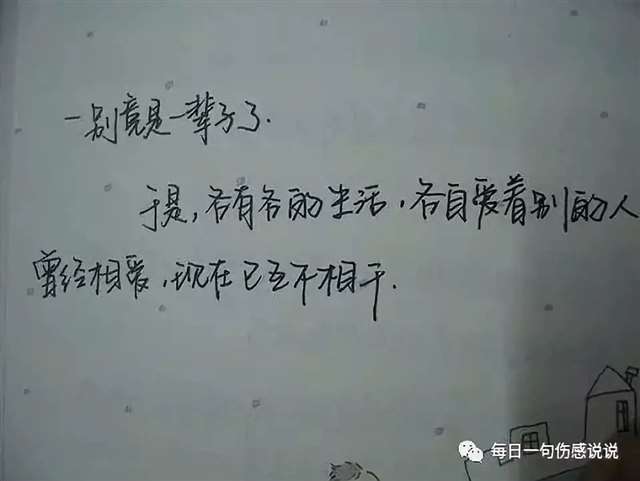 一别竟是一辈子了.
于是,各有各的生活,各自爱着别的人
曾经相爱,现在已互不相干.
每日一句伤感说说